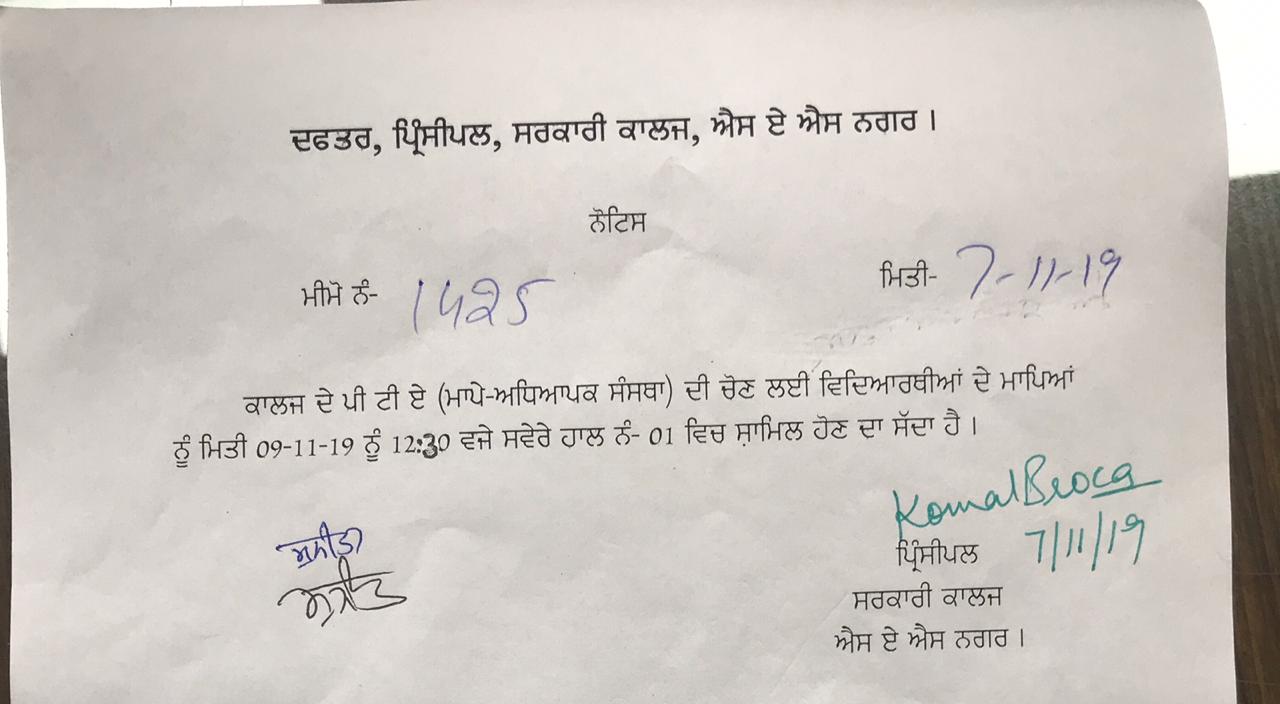 ਦਫਤਰ, ਪ੍ਰਿੰਸੀਪਲ, ਸਰਕਾਰੀ ਕਾਲਜ, ਐਸ ਏ ਐਸ ਨਗਰ।
ਨੋਟਿਸ
ਮੀਮੋ ਨੰ- 1425 ਮਿਤੀ- 7-11-19
ਕਾਲਜ ਦੇ ਪੀ ਟੀ ਏ (ਮਾਪੇ-ਅਧਿਆਪਕ ਸੰਸਥਾ) ਦੀ ਚੋਣ ਲਈ ਵਿਦਿਆਰਥੀਆਂ ਦੇ ਮਾਪਿਆਂ
ਨੂੰ ਮਿਤੀ 09-11-19 ਨੂੰ 12:30 ਵਜੇ ਸਵੇਰੇ ਹਾਲ ਨੰ- 01 ਵਿਚ ਸ਼ਾਮਿਲ ਹੋਣ ਦਾ ਸੱਦਾ ਹੈ।
Komal Broca
ਪ੍ਰਿੰਸੀਪਲ 7/11/19
ਸਰਕਾਰੀ ਕਾਲਜ
ਐਸ ਏ ਐਸ ਨਗਰ।